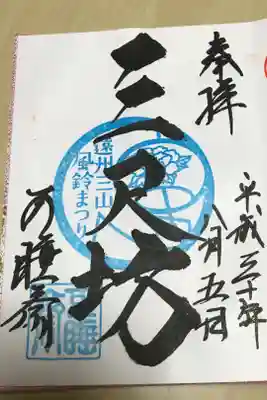 奉拝
平成三十年
八月五日
三尺坊
遠州三山
風鈴まつり
可睡斎